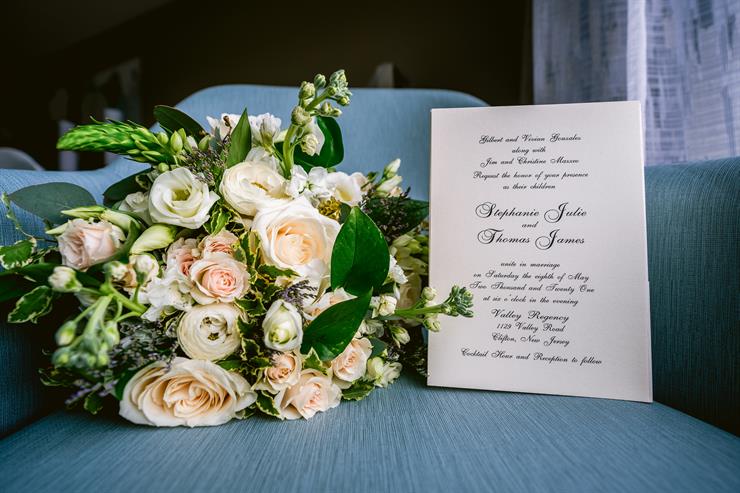 Gilbert and Vivian Gonzales
along with
Jim and Christine Mazzeo
Request the honor of your presence
as their children
Stephanie Julie
and
Thomas James
unite in marriage
on Saturday the eighth of May
Two Thousand and Twenty One
at six o'clock in the evening
Valley Regency
1129 Valley Road
Clifton, New Jersey
Cocktail Hour and Reception to follow